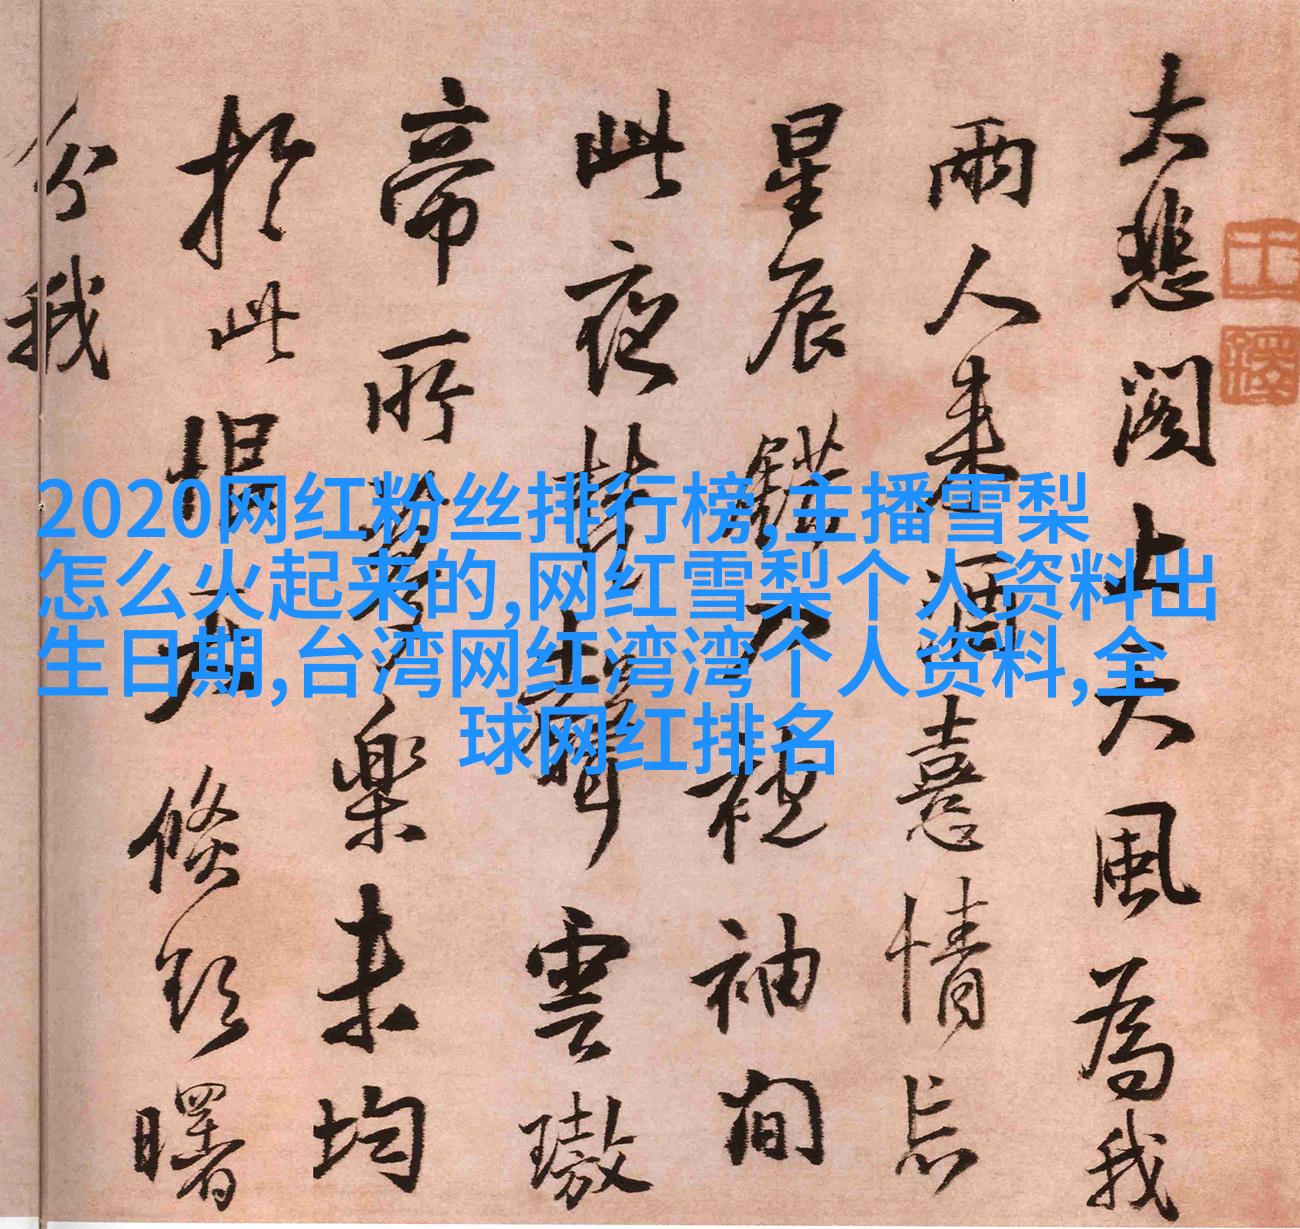 2020网红粉丝排行榜,主播雪梨
怎么火起来的,网红雪梨个人资料出
生日期,台湾网红湾湾个人资料,全
球网红排名
大悲閣上天風為我
兩人来酒憙情忘
星辰錯袖间
此夜聲雲璈
帝所樂未均
於此曙
分我